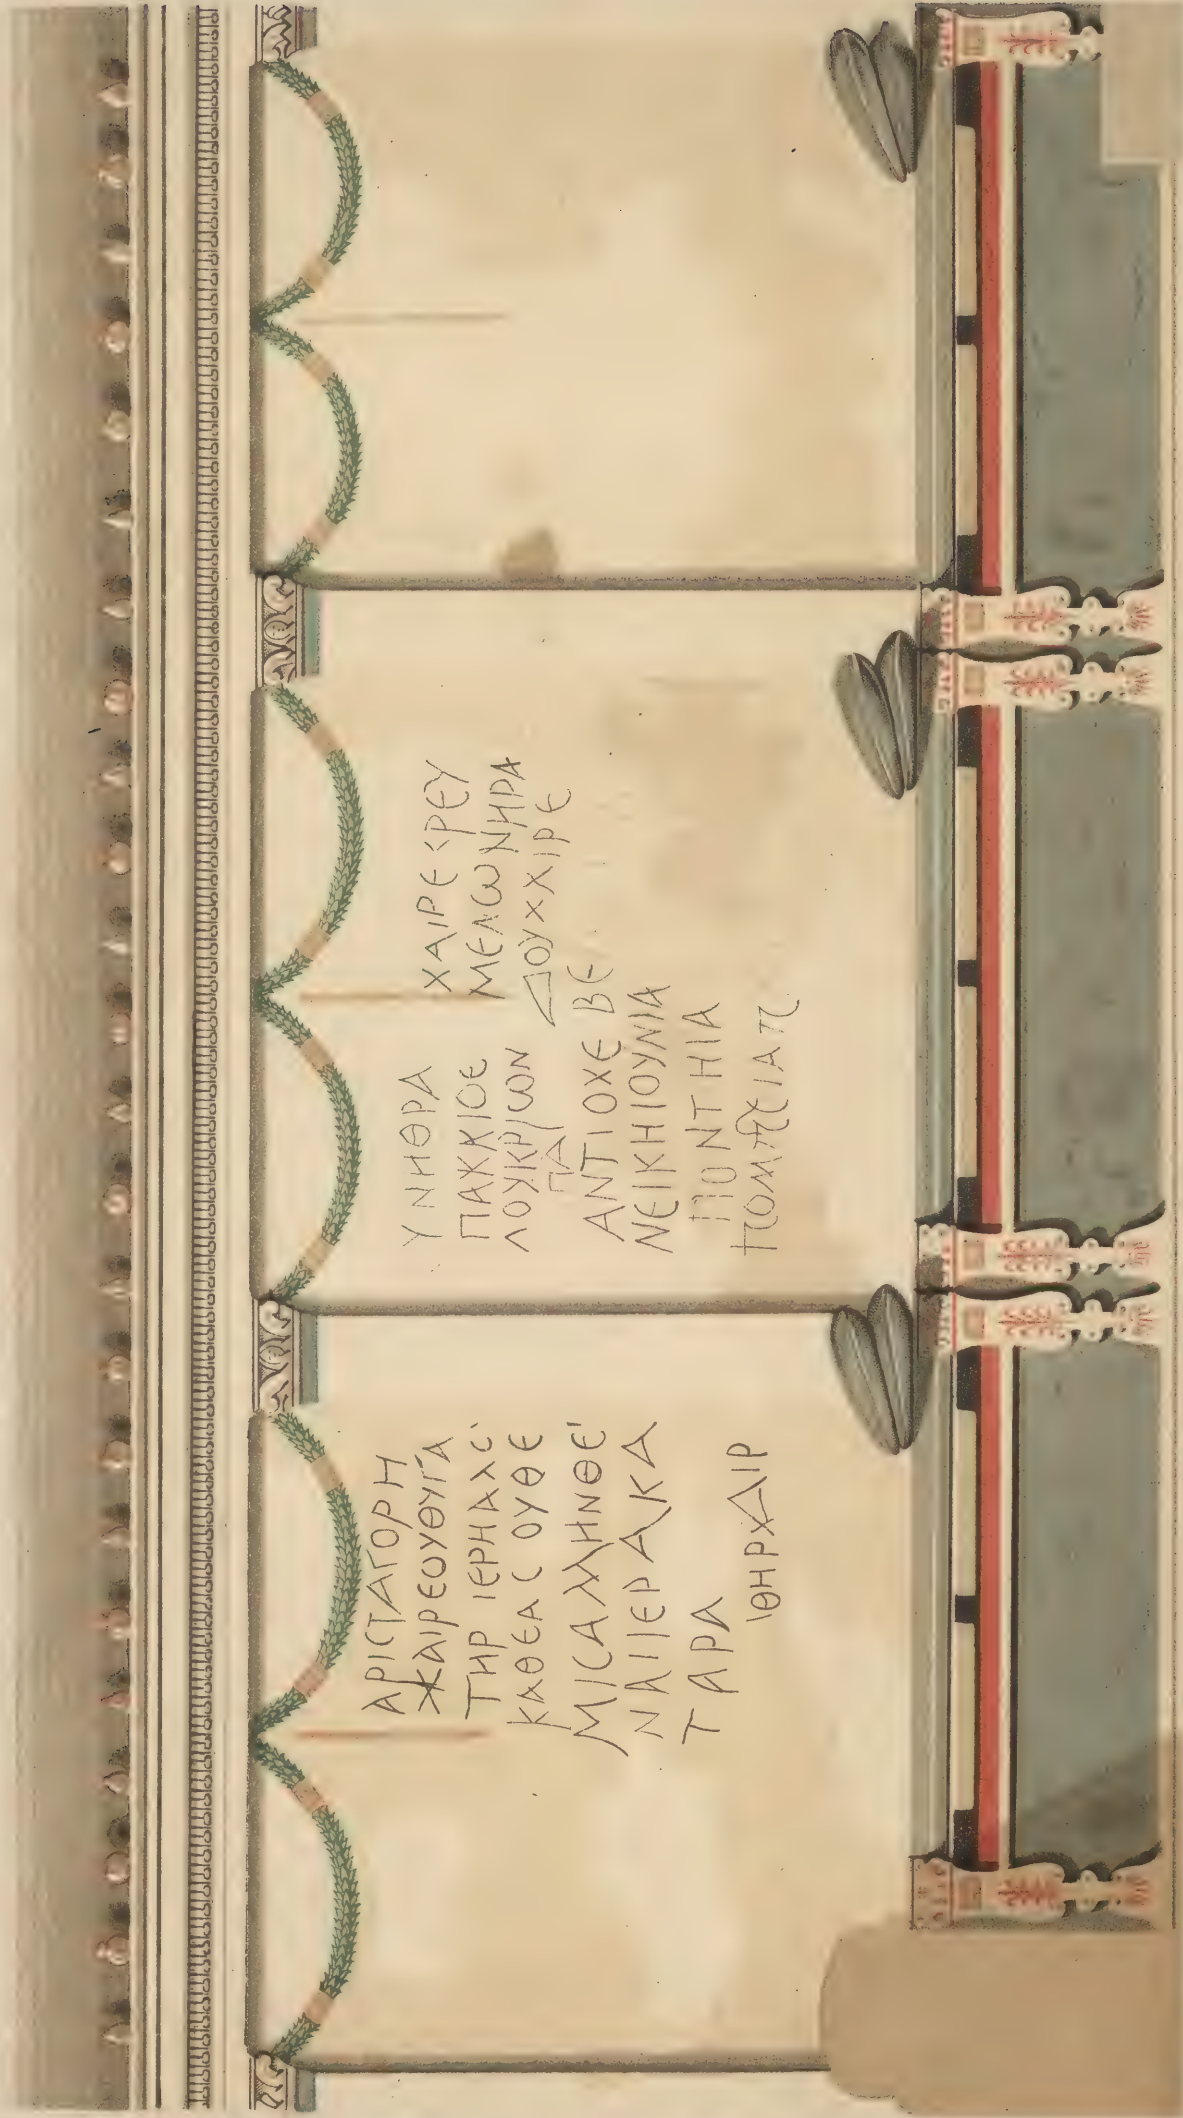 ΑΡΙϹΤΑΓΟΡΗ
ΧΑΙΡΕΟΥΘΥΓΑ
ΤΗΡ ΙΕΡΗΑΧΕ
ΚΑΘΕΑϹ ΟΥΘΕ
ΜΙϹΑΛΛΗΝΘΕ
ΝΑΙΙΕΡΑΚΑ
ΤΑΡΑ
ΙΘΗΡΧΑΙΡ
ΥΝΗΘΡΑ
ΠΑΚΚΙΟΕ
ΛΟΥΚΡΙΩΝ
ΠΑ
ΑΝΤΙΟΧΕ ΒΕ
ΝΕΙΚΗΙΟΥΝΙΑ
ΠΟΝΤΗΙΑ
ΧΑΙΡΕ ϹΡΕΥ
ΜΕΛΩΝΗΡΑ
ΔΟΥΧΧΙΡΕ